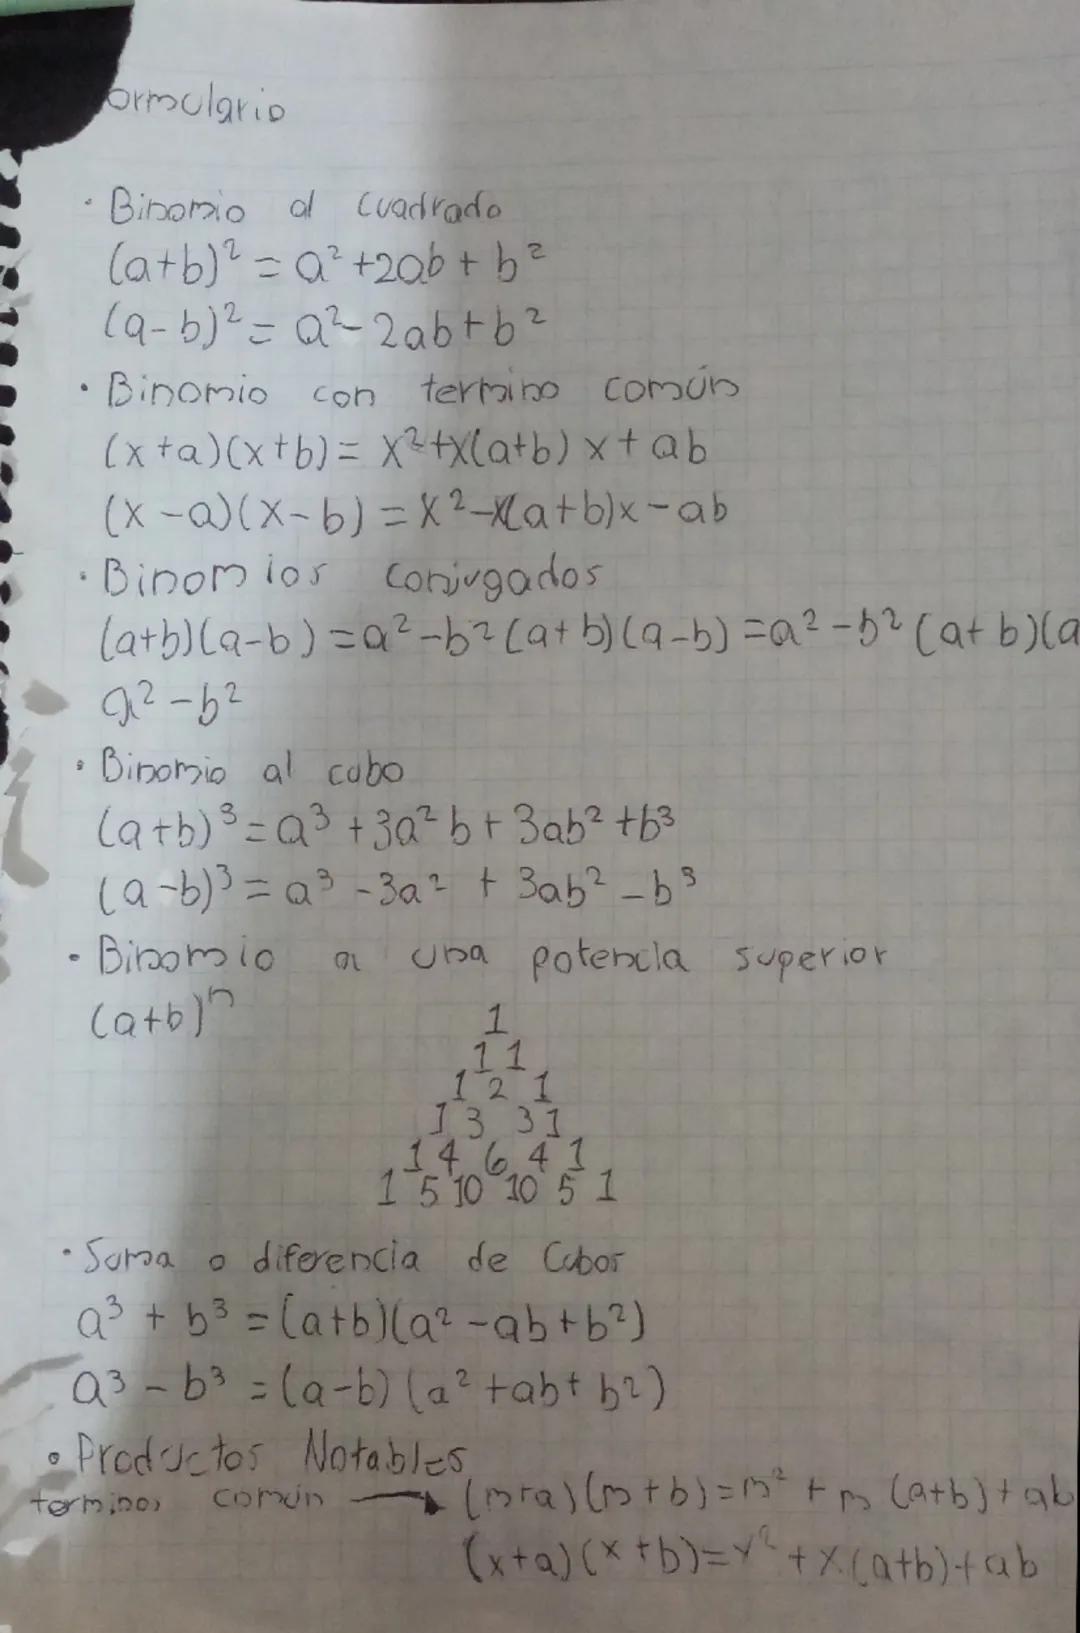 ormulario
· Binomio al cuadrado
(a+b)² = a² +2ab + b²
(a-b)² = a²- 2ab+b²
· Binomio con termino común
(x+a)(x+b)= x²+x(a+b) x + ab
(x-a)(x-b) = x²-x(a+b)x-ab
· Binomios conjugados
(a+b)(a-b) = a²-b² (a+b)(a-b) = a²-b² (a+b)(a
a²-b²
· Binomio al cubo
(a+b)³ = a³ + 3a²b + 3ab² + b³
(a-b)³ = a³ - 3a² + 3ab² - b³
· Binomio a una potencia superior
(a+b)ⁿ
1
1 1
1 2 1
1 3 3 1
1 4 6 4 1
1 5 10 10 5 1
· Suma o diferencia de Cubos
a³ + b³ = (a+b)(a² - ab + b²)
a³ - b³ = (a-b) (a² + ab + b²)
· Productos Notables
terminos común → (m+a)(m+b) = m² + m (a+b) + ab
(x+a)(x+b) = x² + x(a+b)+ab